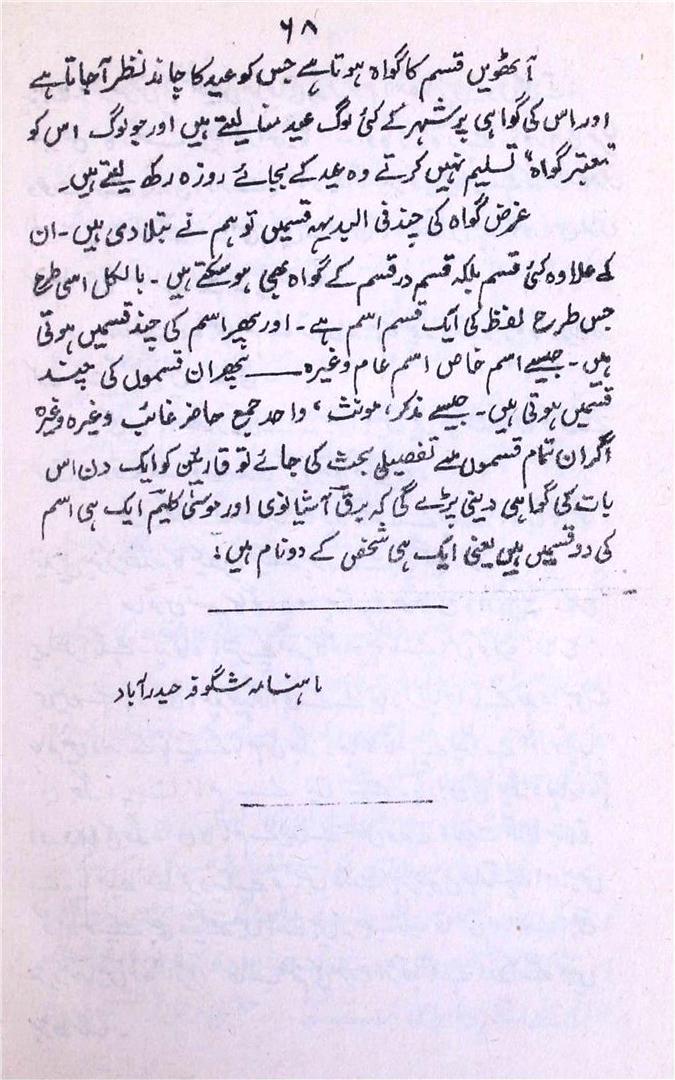 ۶۸
آٹھویں قسم کا گواہ ہوتا ہے جس کو عید کا چاند نظر آجاتا ہے
اور اس کی گواہی پر شہر کے کئی لوگ عید منا لیتے ہیں اور جو لوگ اس کو
"معتبر گواہ" تسلیم نہیں کرتے وہ عید کے بجائے روزہ رکھ لیتے ہیں۔
غرض گواہ کی چند فی البدیہہ قسمیں تو ہم نے بتلا دی ہیں۔ ان
کے علاوہ کئی قسم بلکہ قسم در قسم کے گواہ بھی ہو سکتے ہیں۔ بالکل اسی طرح
جس طرح لفظ کی ایک قسم اسم ہے۔ اور پھر اسم کی چند قسمیں ہوتی
ہیں۔ جیسے اسم خاص اسم عام وغیرہ ــــ پھر ان قسموں کی چند
قسمیں ہوتی ہیں۔ جیسے مذکر، مونث، واحد جمع حاضر غائب وغیرہ وغیرہ
اگر ان تمام قسموں سے تفصیلی بحث کی جائے تو قارئین کو ایک دن اس
بات کی گواہی دینی پڑے گی کہ برق آشیانوی اور موسیٰ کلیم ایک ہی اسم
کی دو قسمیں ہیں یعنی ایک ہی شخص کے دو نام ہیں؟
ماہنامہ شگوفہ حیدرآباد